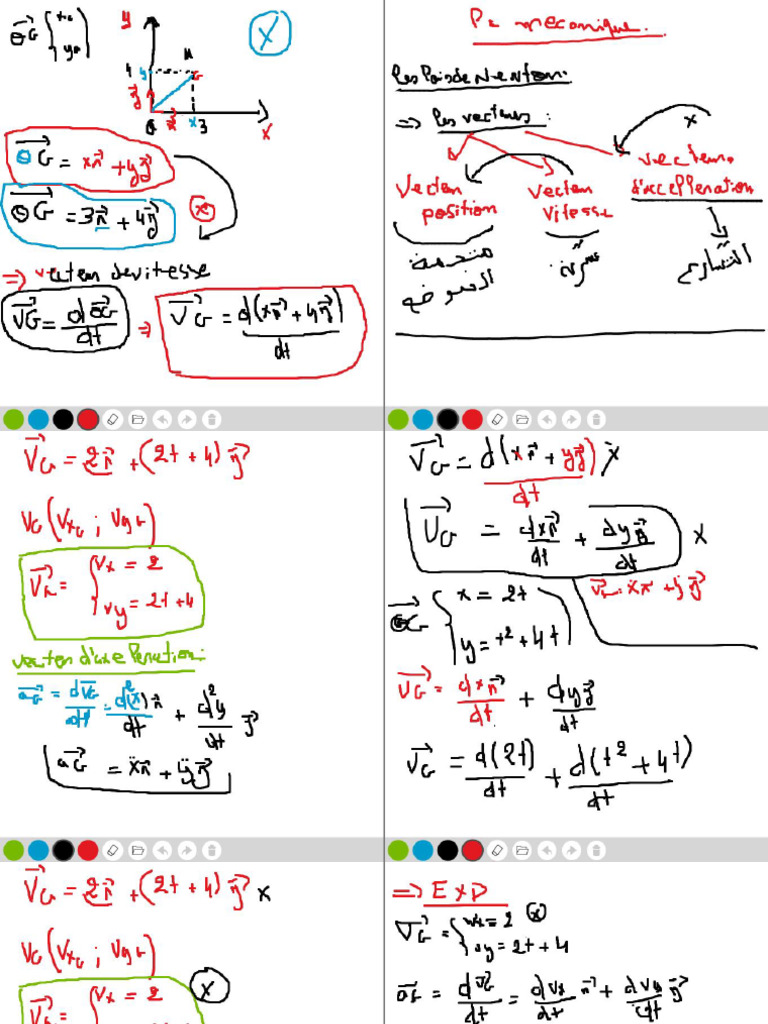 OG { xG
yG
y
x
4 y
G
O
x 3
x
OG = xi + yj
OG = 3i + 4j
x
=> vecteur de vitesse
VG = dOG/dt => VG = d(xi + yj)/dt
La mécanique.
Les lois de Newton:
=> les vecteurs:
x
vecteur position
vecteur vitesse
vecteur d'accélération
متجهة
سرعة
التسارع
VG = 2i + (2t + 4)j
VG (VxG ; VyG)
VG = { Vx = 2
Vy = 2t + 4
vecteur d'accélération:
aG = dVG/dt = d²(x)i/dt + d²y/dt j
aG = ẍi + ÿj
VG = d(xi + yj)/dt x
VG = dxi/dt + dyj/dt x
VG = ẋi + ẏj
OG { x = 2t
y = t² + 4t
VG = dxi/dt + dyj/dt
VG = d(2t)/dt + d(t² + 4t)/dt
VG = 2i + (2t + 4)j x
VG (VxG ; VyG)
x
VG = { Vx = 2
=> EXP
VG = { vx = 2 x
vy = 2t + 4
aG = dVG/dt = dVx/dt i + dVy/dt j